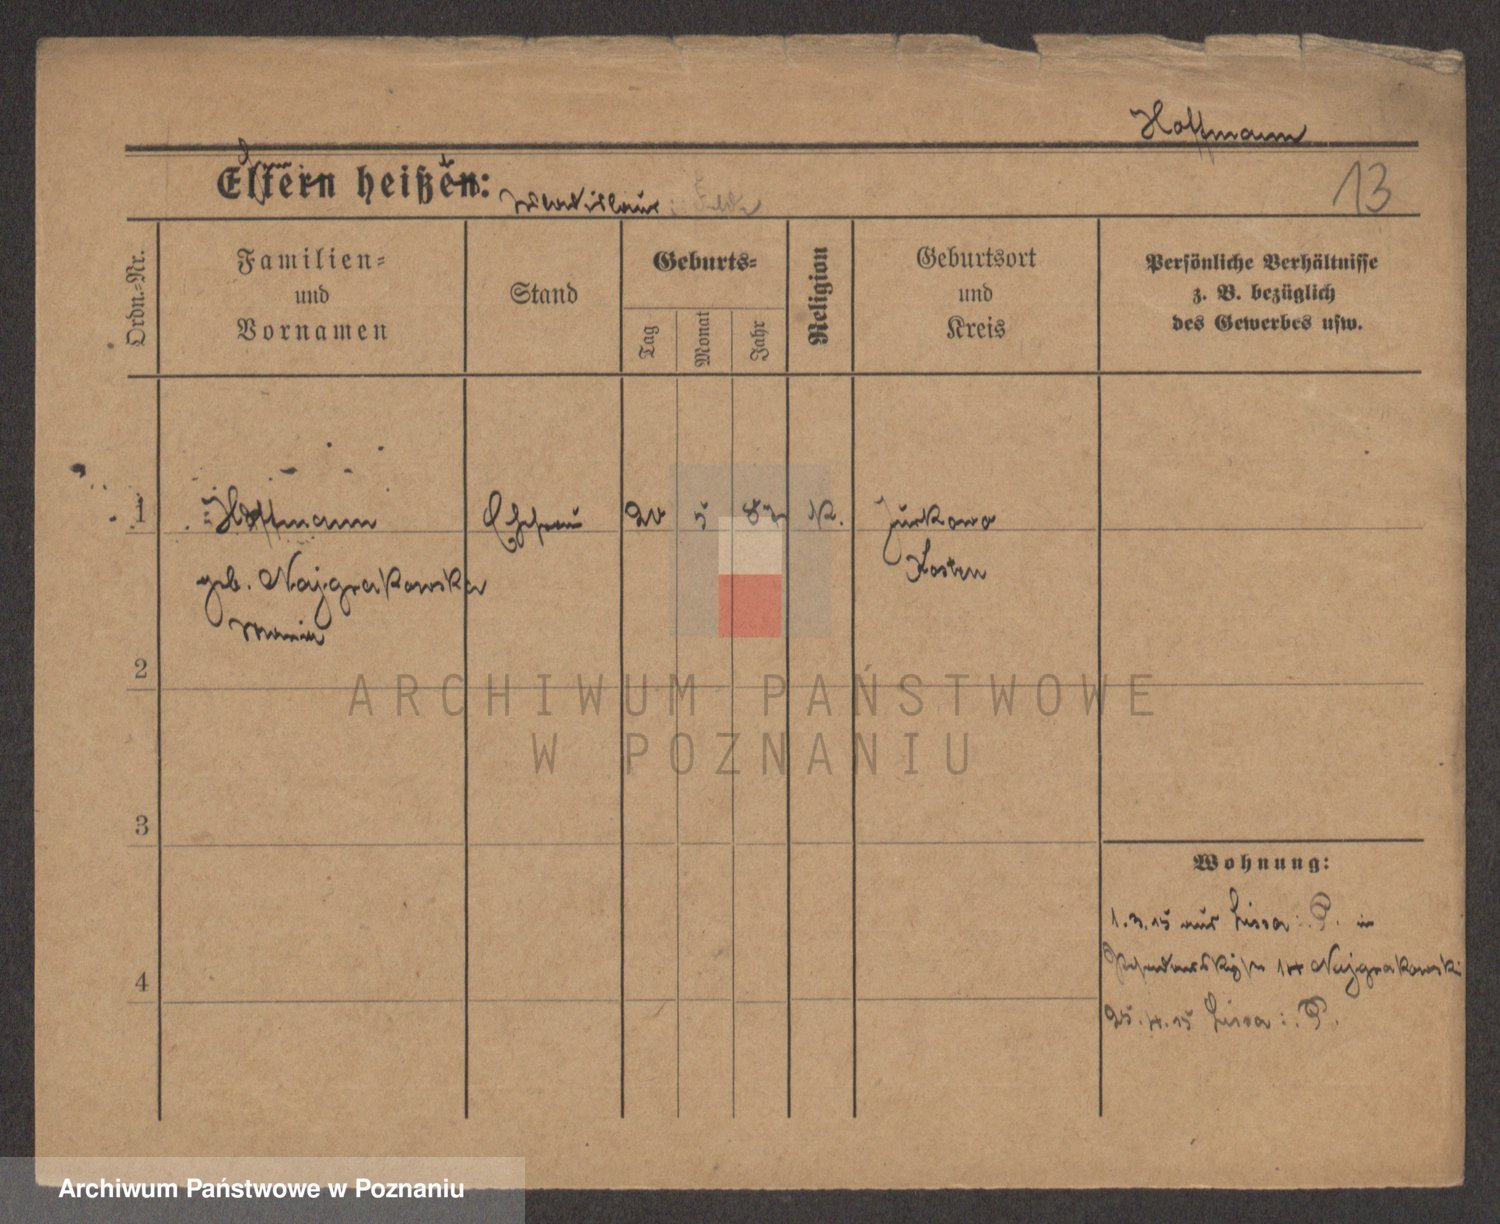 Hoffmann
Eltern heißen: Wladislaus
13
Ordn.-Nr.
Familien-
und
Vornamen
Stand
Geburts-
Tag
Monat
Jahr
Religion
Geburtsort
und
Kreis
Persönliche Verhältnisse
z. B. bezüglich
des Gewerbes usw.
1 Hoffmann Ehefrau 20 5 K. Jurkowo
Kosten
geb. Najgrakowska
Maria
2
ARCHIWUM PAŃSTWOWE
W POZNANIU
3
Wohnung:
1.3.15 aus Lissa i. P. in
14 Najgrakowski
4
25.4.15 Lissa i. P.
Archiwum Państwowe w Poznaniu